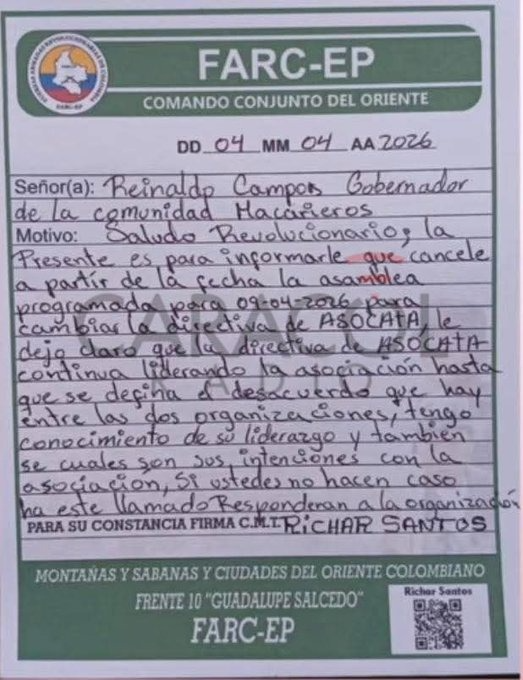 FARC-EP
COMANDO CONJUNTO DEL ORIENTE
FARC-EP
DD 04 MM 04 AA 2026
Señor(a): Reinaldo Campos Gobernador
de la comunidad Macarieros
Motivo: Saludo Revolucionario, la
Presente es para informarle que cancele
a partir de la fecha la asamblea
programada para 09-04-2026 para
cambiar la directiva de ASOCATA, le
dejo claro que la directiva de ASOCATA
continua liderando la asociación hasta
que se defina el desacuerdo que hay
entre las dos organizaciones, tengo
conocimiento de su liderazgo y tambien
se cuales son sus intenciones con la
asociacion, Si ustedes no hacen caso
ha este llamado Responderan a la organización
PARA SU CONSTANCIA FIRMA C.M.T. RICHAR SANTOS
CARACOL
RADIO
MONTAÑAS Y SABANAS Y CIUDADES DEL ORIENTE COLOMBIANO
FRENTE 10 "GUADALUPE SALCEDO"
FARC-EP
Richar Santos